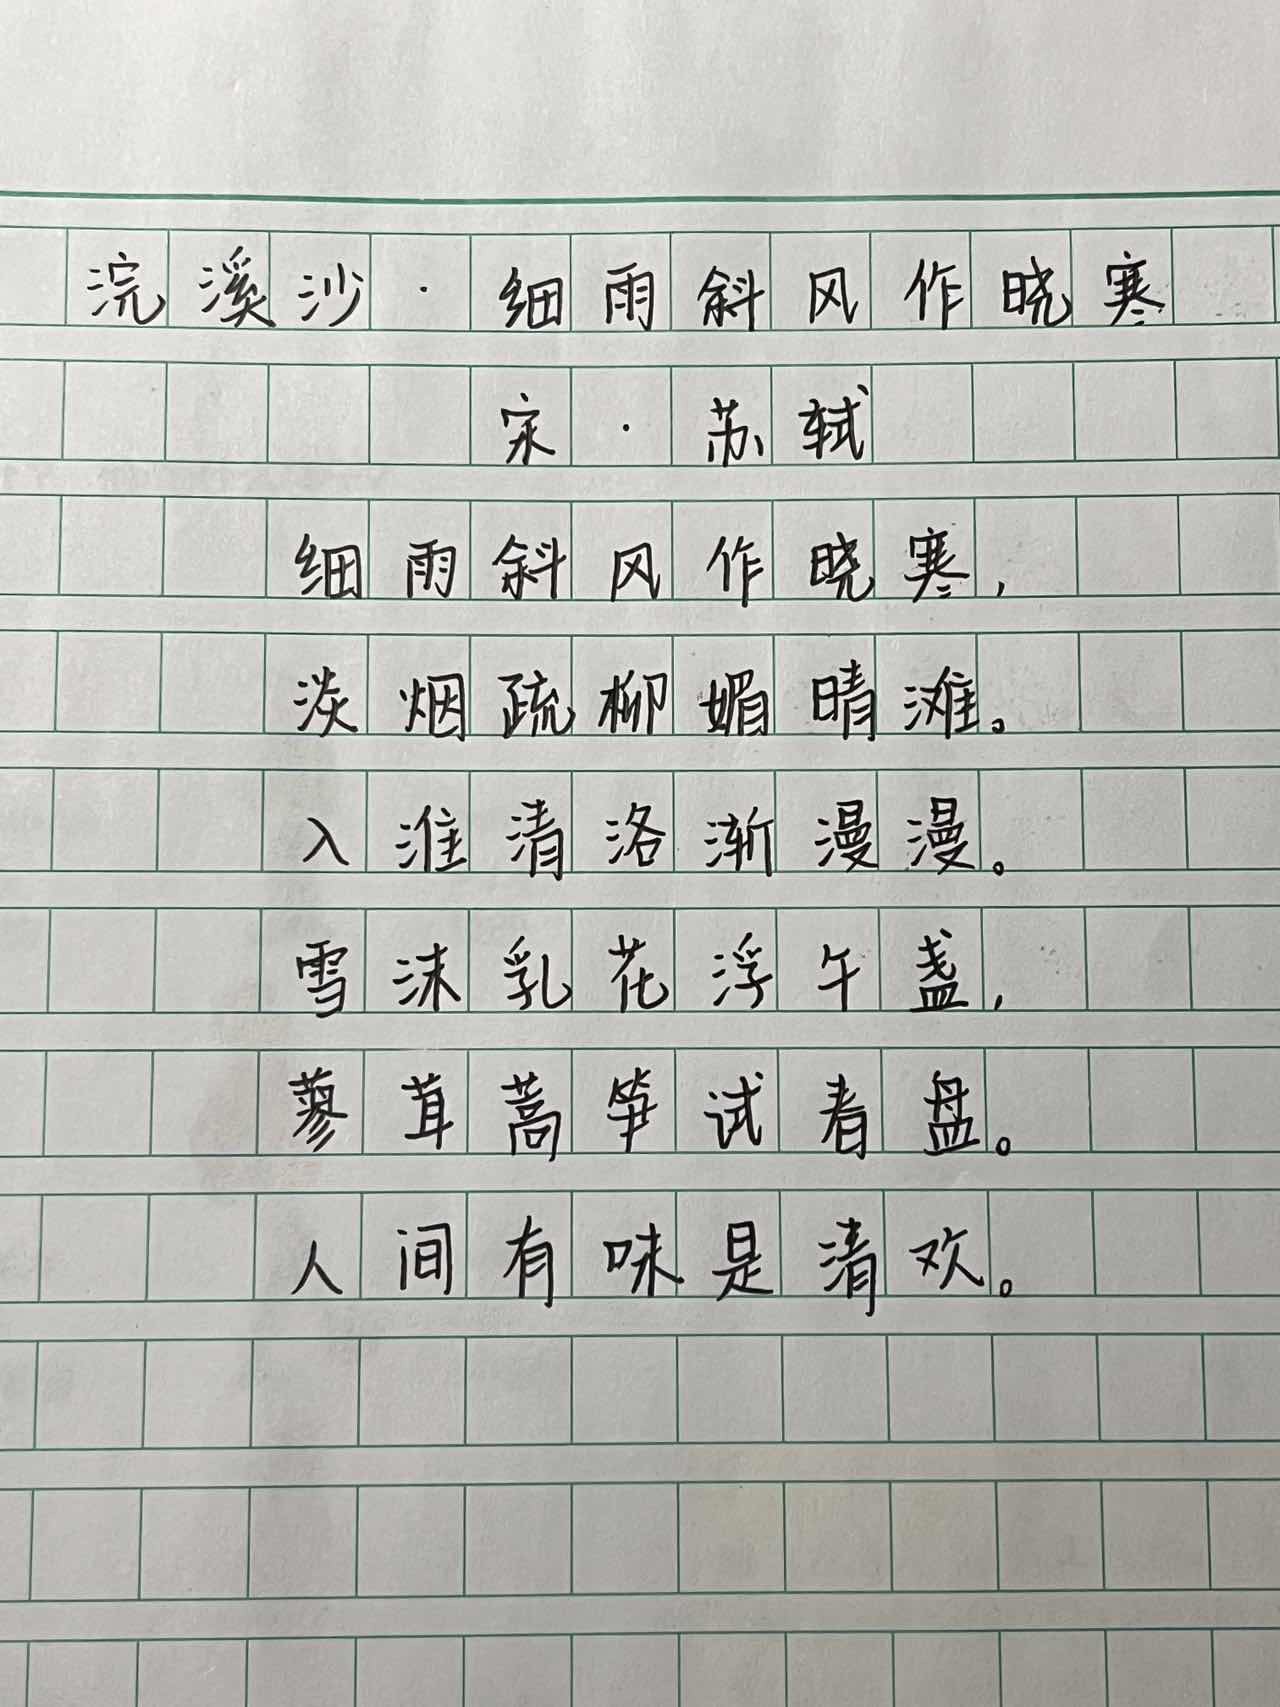 浣溪沙·细雨斜风作晓寒
宋·苏轼
细雨斜风作晓寒，
淡烟疏柳媚晴滩。
入淮清洛渐漫漫。
雪沫乳花浮午盏，
蓼茸蒿笋试春盘。
人间有味是清欢。